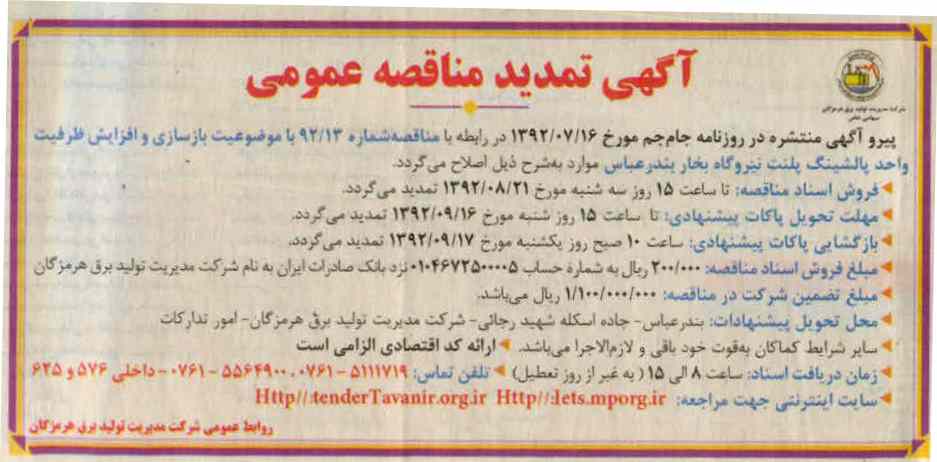 آگهی تمدید مناقصه عمومی
شرکت مدیریت تولید برق هرمزگان
سهامی خاص
پیرو آگهی منتشره در روزنامه جام‌جم مورخ ۱۳۹۲/۰۷/۱۶ در رابطه با مناقصه‌شماره ۹۲/۱۳ با موضوعیت بازسازی و افزایش ظرفیت
واحد پالشینگ پلنت نیروگاه بخار بندرعباس موارد به‌شرح ذیل اصلاح می‌گردد.
فروش اسناد مناقصه: تا ساعت ۱۵ روز سه شنبه مورخ ۱۳۹۲/۰۸/۲۱ تمدید می‌گردد.
مهلت تحویل پاکات پیشنهادی: تا ساعت ۱۵ روز شنبه مورخ ۱۳۹۲/۰۹/۱۶ تمدید می‌گردد.
بازگشایی پاکات پیشنهادی: ساعت ۱۰ صبح روز یکشنبه مورخ ۱۳۹۲/۰۹/۱۷ تمدید می‌گردد.
مبلغ فروش اسناد مناقصه: ۲۰۰/۰۰۰ ریال به شماره حساب ۰۱۰۴۶۷۲۵۰۰۰۰۵ نزد بانک صادرات ایران به نام شرکت مدیریت تولید برق هرمزگان
مبلغ تضمین شرکت در مناقصه: ۱/۱۰۰/۰۰۰/۰۰۰ ریال می‌باشد.
محل تحویل پیشنهادات: بندرعباس- جاده اسکله شهید رجائی- شرکت مدیریت تولید برق هرمزگان- امور تدارکات
سایر شرایط کماکان به‌قوت خود باقی و لازم‌الاجرا می‌باشد. ارائه کد اقتصادی الزامی است
زمان دریافت اسناد: ساعت ۸ الی ۱۵ (به غیر از روز تعطیل) تلفن تماس: ۵۱۱۱۷۱۹-۰۷۶۱ ، ۵۵۶۴۹۰۰-۰۷۶۱ - داخلی ۵۷۶ و ۶۲۵
سایت اینترنتی جهت مراجعه: Http//:tenderTavanir.org.ir Http//:Iets.mporg.ir
روابط عمومی شرکت مدیریت تولید برق هرمزگان